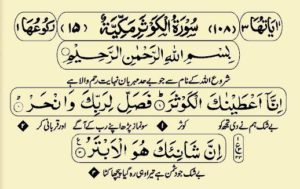 اٰیَاتُهَا ٣ (١٠٨) سُوْرَةُ الْكَوْثَرِ مَكِّيَّةٌ (١٥) رُكُوْعُهَا ١
بِسْمِ اللّٰهِ الرَّحْمٰنِ الرَّحِيْمِ
شروع اللہ کے نام سے جو بے حد مہربان نہایت رحم والا ہے
اِنَّاۤ اَعْطَيْنٰكَ الْكَوْثَرَ ؕ فَصَلِّ لِرَبِّكَ وَانْحَرْ ؕ
بے شک ہم نے دی تجھ کو کوثر ۱ سو نماز پڑھ اپنے رب کے آگے اور قربانی کر ۲
اِنَّ شَانِئَكَ هُوَ الْاَبْتَرُ
بے شک جو دشمن ہے تیرا وہی رہ گیا پیچھا کٹا ۳